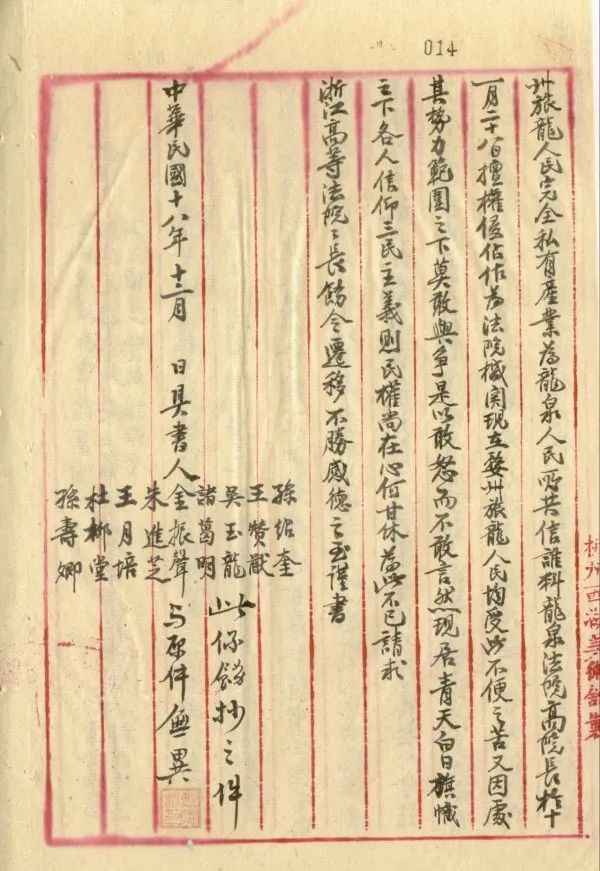 014
州旅龍人民完全私有產業為龍泉人民所共信誰料龍泉法院高院長於十
一月二十八日擅權侵佔作為法院機関現在婺州旅龍人民均受此不便之苦又因處
其勢力範圍之下莫敢與爭是以敢怒而不敢言然現居青天白日旗幟
之下各人信仰三民主義則民權尚在心何甘休為此不已請求
浙江高等法院院長飭令遷移不勝感德之至謹書
中華民國十八年十二月 日具書人金振聲
孫紹奎
王贊猷
吳玉龍
諸葛明
朱進芝
王月培
杜郁堂
孫壽卿
此係錄抄之件
与原件無異
杭州西湖美術舘製